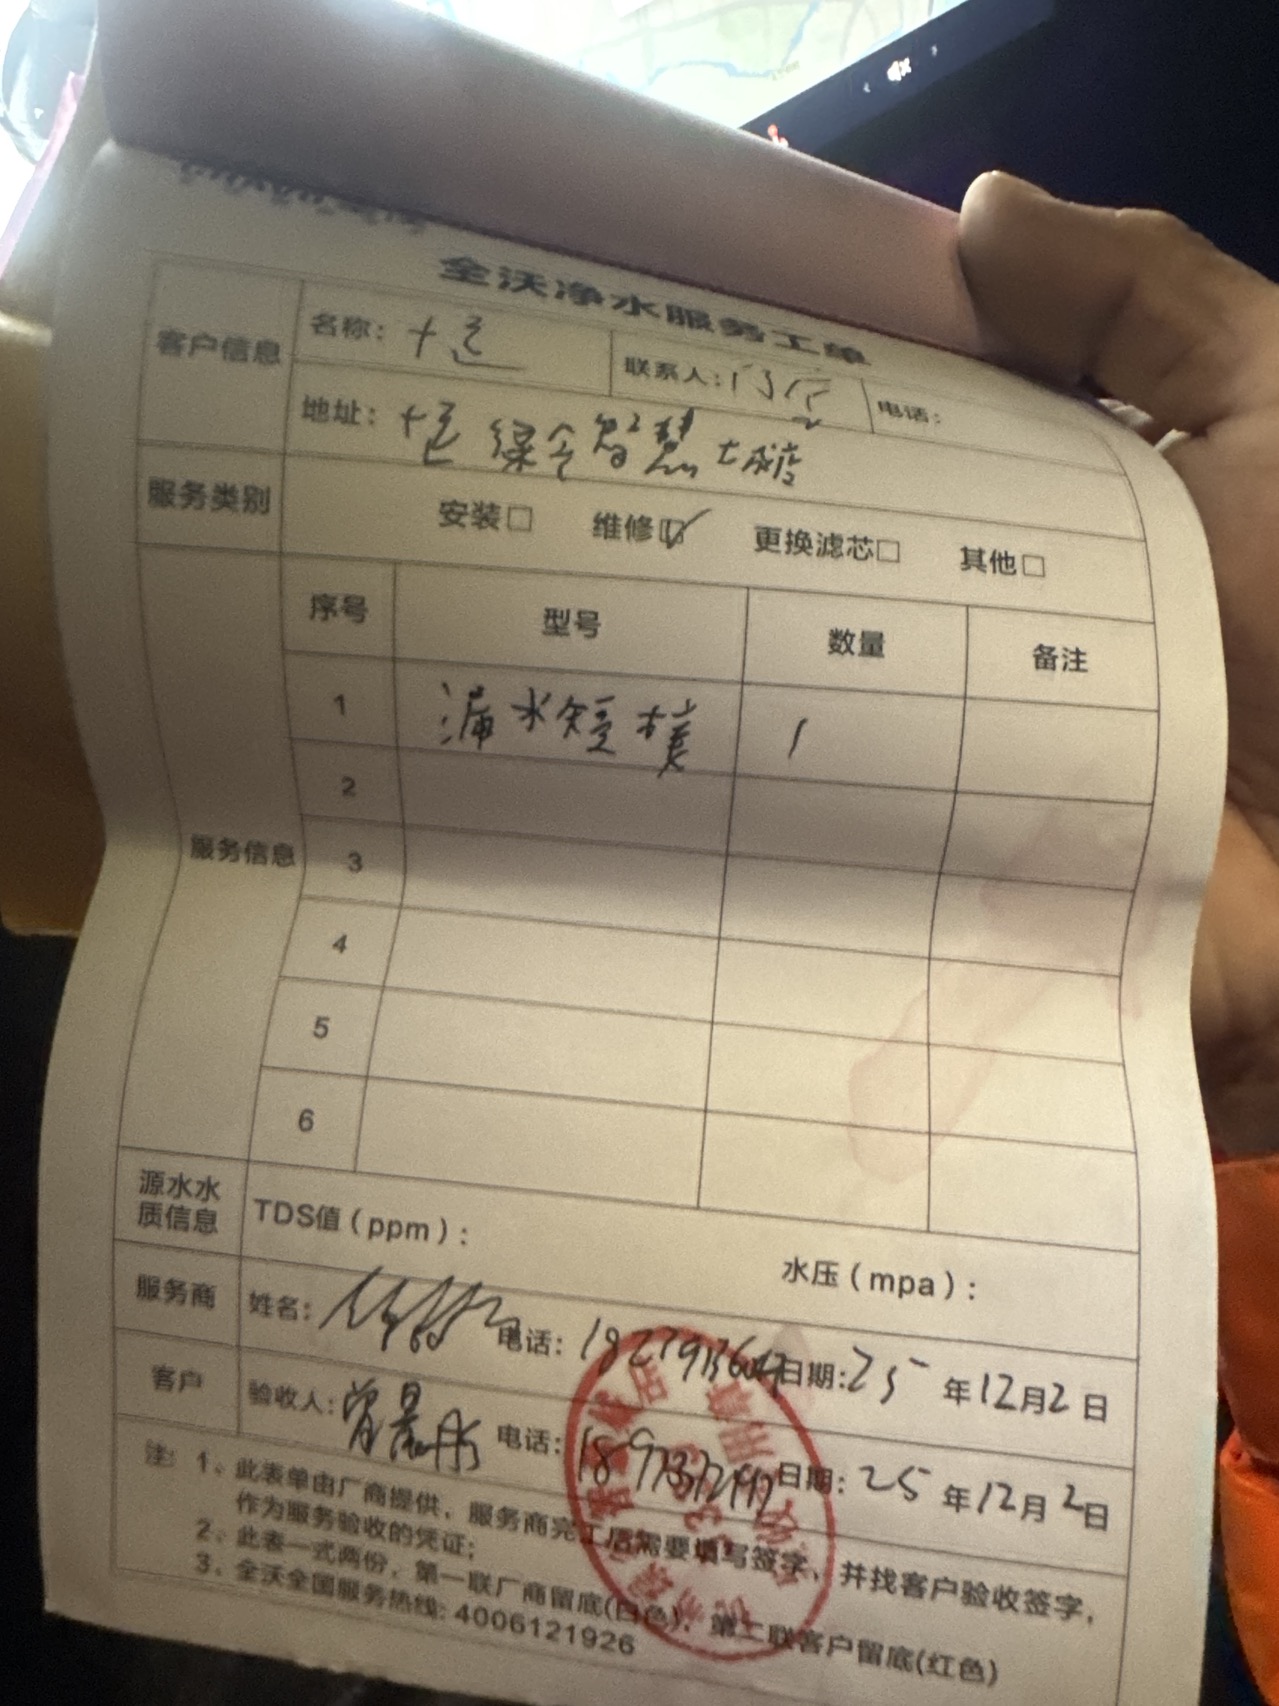 全沃净水服务工单
客户信息 名称: 联系人: 电话:
地址: 智慧
服务类别 安装□ 维修☑ 更换滤芯□ 其他□
服务信息 序号 型号 数量 备注
1 漏水 1
2
3
4
5
6
源水水质信息 TDS值(ppm): 水压(mpa):
服务商 姓名: 电话: 日期: 25年12月2日
客户 验收人: 电话: 日期: 25年12月2日
注: 1、此表单由厂商提供,服务商完工后需要填写签字,并找客户验收签字,
作为服务验收的凭证;
2、此表一式两份,第一联厂商留底(白色),第二联客户留底(红色)
3、全沃全国服务热线: 4006121926